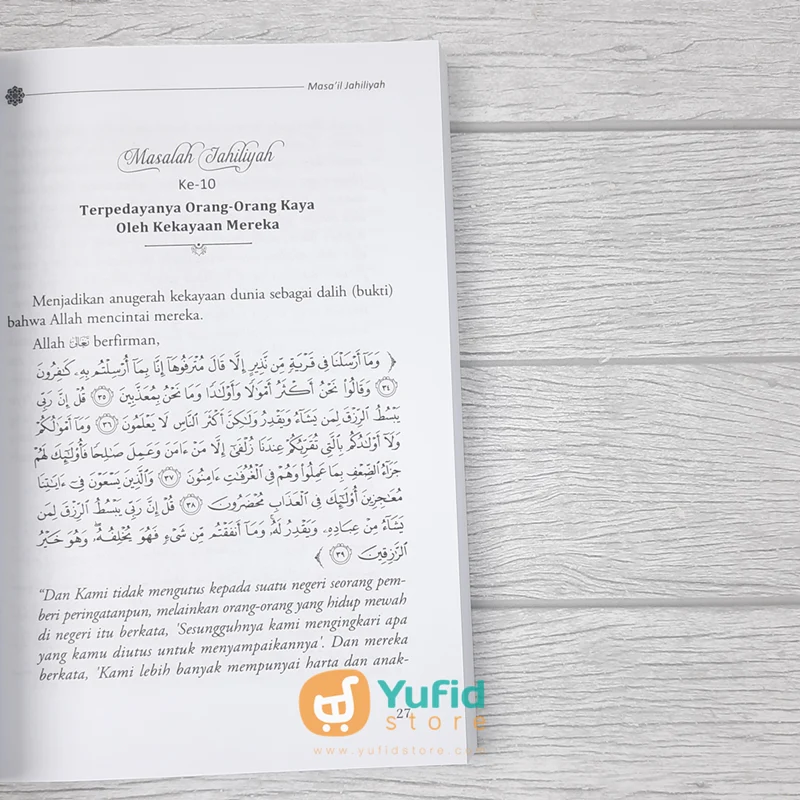 Masa'il Jahiliyah
Masalah Jahiliyah
Ke-10
Terpedayanya Orang-Orang Kaya
Oleh Kekayaan Mereka
Menjadikan anugerah kekayaan dunia sebagai dalih (bukti)
bahwa Allah mencintai mereka.
Allah تعالى berfirman,
﴿ وَمَآ أَرْسَلْنَا فِى قَرْيَةٍ مِّن نَّذِيرٍ إِلَّا قَالَ مُتْرَفُوهَآ إِنَّا بِمَآ أُرْسِلْتُم بِهِۦ كَـٰفِرُونَ
﴿٣٤﴾ وَقَالُوا۟ نَحْنُ أَكْثَرُ أَمْوَٰلًا وَأَوْلَـٰدًا وَمَا نَحْنُ بِمُعَذَّبِينَ ﴿٣٥﴾ قُلْ إِنَّ رَبِّى
يَبْسُطُ ٱلرِّزْقَ لِمَن يَشَآءُ وَيَقْدِرُ وَلَـٰكِنَّ أَكْثَرَ ٱلنَّاسِ لَا يَعْلَمُونَ ﴿٣٦﴾ وَمَآ أَمْوَٰلُكُمْ
وَلَآ أَوْلَـٰدُكُم بِٱلَّتِى تُقَرِّبُكُمْ عِندَنَا زُلْفَىٰٓ إِلَّا مَنْ ءَامَنَ وَعَمِلَ صَـٰلِحًا فَأُو۟لَـٰٓئِكَ لَهُمْ
جَزَآءُ ٱلضِّعْفِ بِمَا عَمِلُوا۟ وَهُمْ فِى ٱلْغُرُفَـٰتِ ءَامِنُونَ ﴿٣٧﴾ وَٱلَّذِينَ يَسْعَوْنَ فِىٓ ءَايَـٰتِنَا
مُعَـٰجِزِينَ أُو۟لَـٰٓئِكَ فِى ٱلْعَذَابِ مُحْضَرُونَ ﴿٣٨﴾ قُلْ إِنَّ رَبِّى يَبْسُطُ ٱلرِّزْقَ لِمَن
يَشَآءُ مِنْ عِبَادِهِۦ وَيَقْدِرُ لَهُۥ ۚ وَمَآ أَنفَقْتُم مِّن شَىْءٍ فَهُوَ يُخْلِفُهُۥ ۖ وَهُوَ خَيْرُ
ٱلرَّٰزِقِينَ ﴿٣٩﴾ ﴾
“Dan Kami tidak mengutus kepada suatu negeri seorang pem-
beri peringatanpun, melainkan orang-orang yang hidup mewah
di negeri itu berkata, 'Sesungguhnya kami mengingkari apa
yang kamu diutus untuk menyampaikannya'. Dan mereka
berkata, 'Kami lebih banyak mempunyai harta dan anak-
27
Yufid
store
www.yufidstore.com